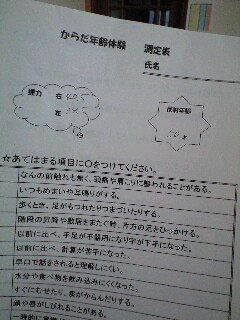 からだ年齢体験　測定表
氏名
握力　右
左
反射年齢
☆あてはまる項目に○をつけてください。
なんの前触れも無く、頭痛や肩こりに襲われることがある。
いつもめまいや耳鳴りがする。
歩くとき、足がもつれたりつまづいたりする。
階段の昇降や敷居をまたぐ時、片方の足をひっかける。
以前に比べ、手足が不器用になり字が下手になった。
以前に比べ、計算が苦手になった。
早口で話をされると理解しにくい。
水分や食べ物を飲み込みにくくなった。
すぐにむせたり、痰がからんだりする。
顔や唇がしびれることがある。